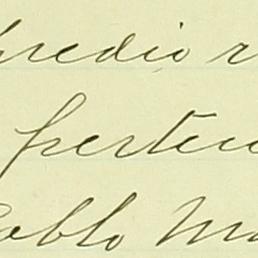 predio r
pertene
Pablo Ma